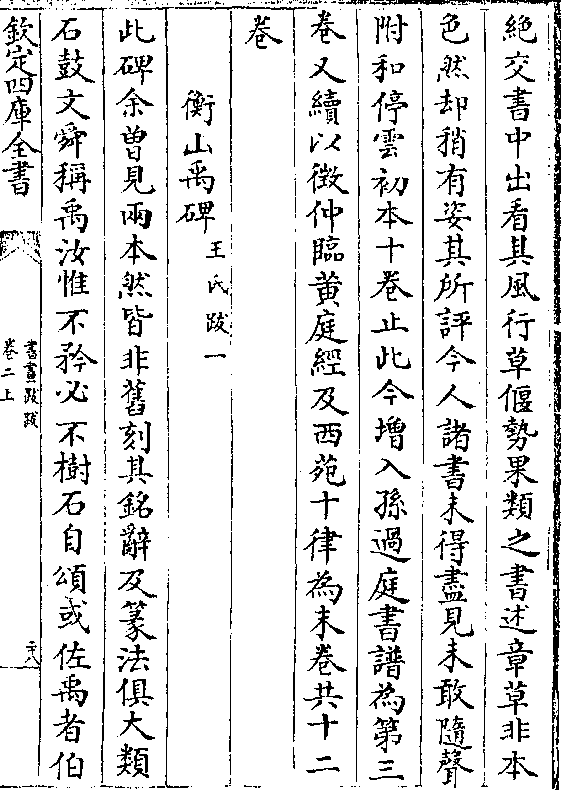 絶交書中出看其風行草偃勢果類之書述章草非本
色然却稍有姿其所評今人諸書未得盡見未敢隨聲
附和停雲初本十卷止此今增入孫過庭書譜為第三
卷又續以徴仲臨黄庭經及西苑十律為末卷共十二
卷
衡山禹碑王氏跋一
此碑余曽見兩本然皆非舊刻其銘辭及篆法俱大類
石鼓文舜稱禹汝惟不矜必不樹石自頌或佐禹者伯
欽定四庫全書
書畫跋跋
卷二上
二八